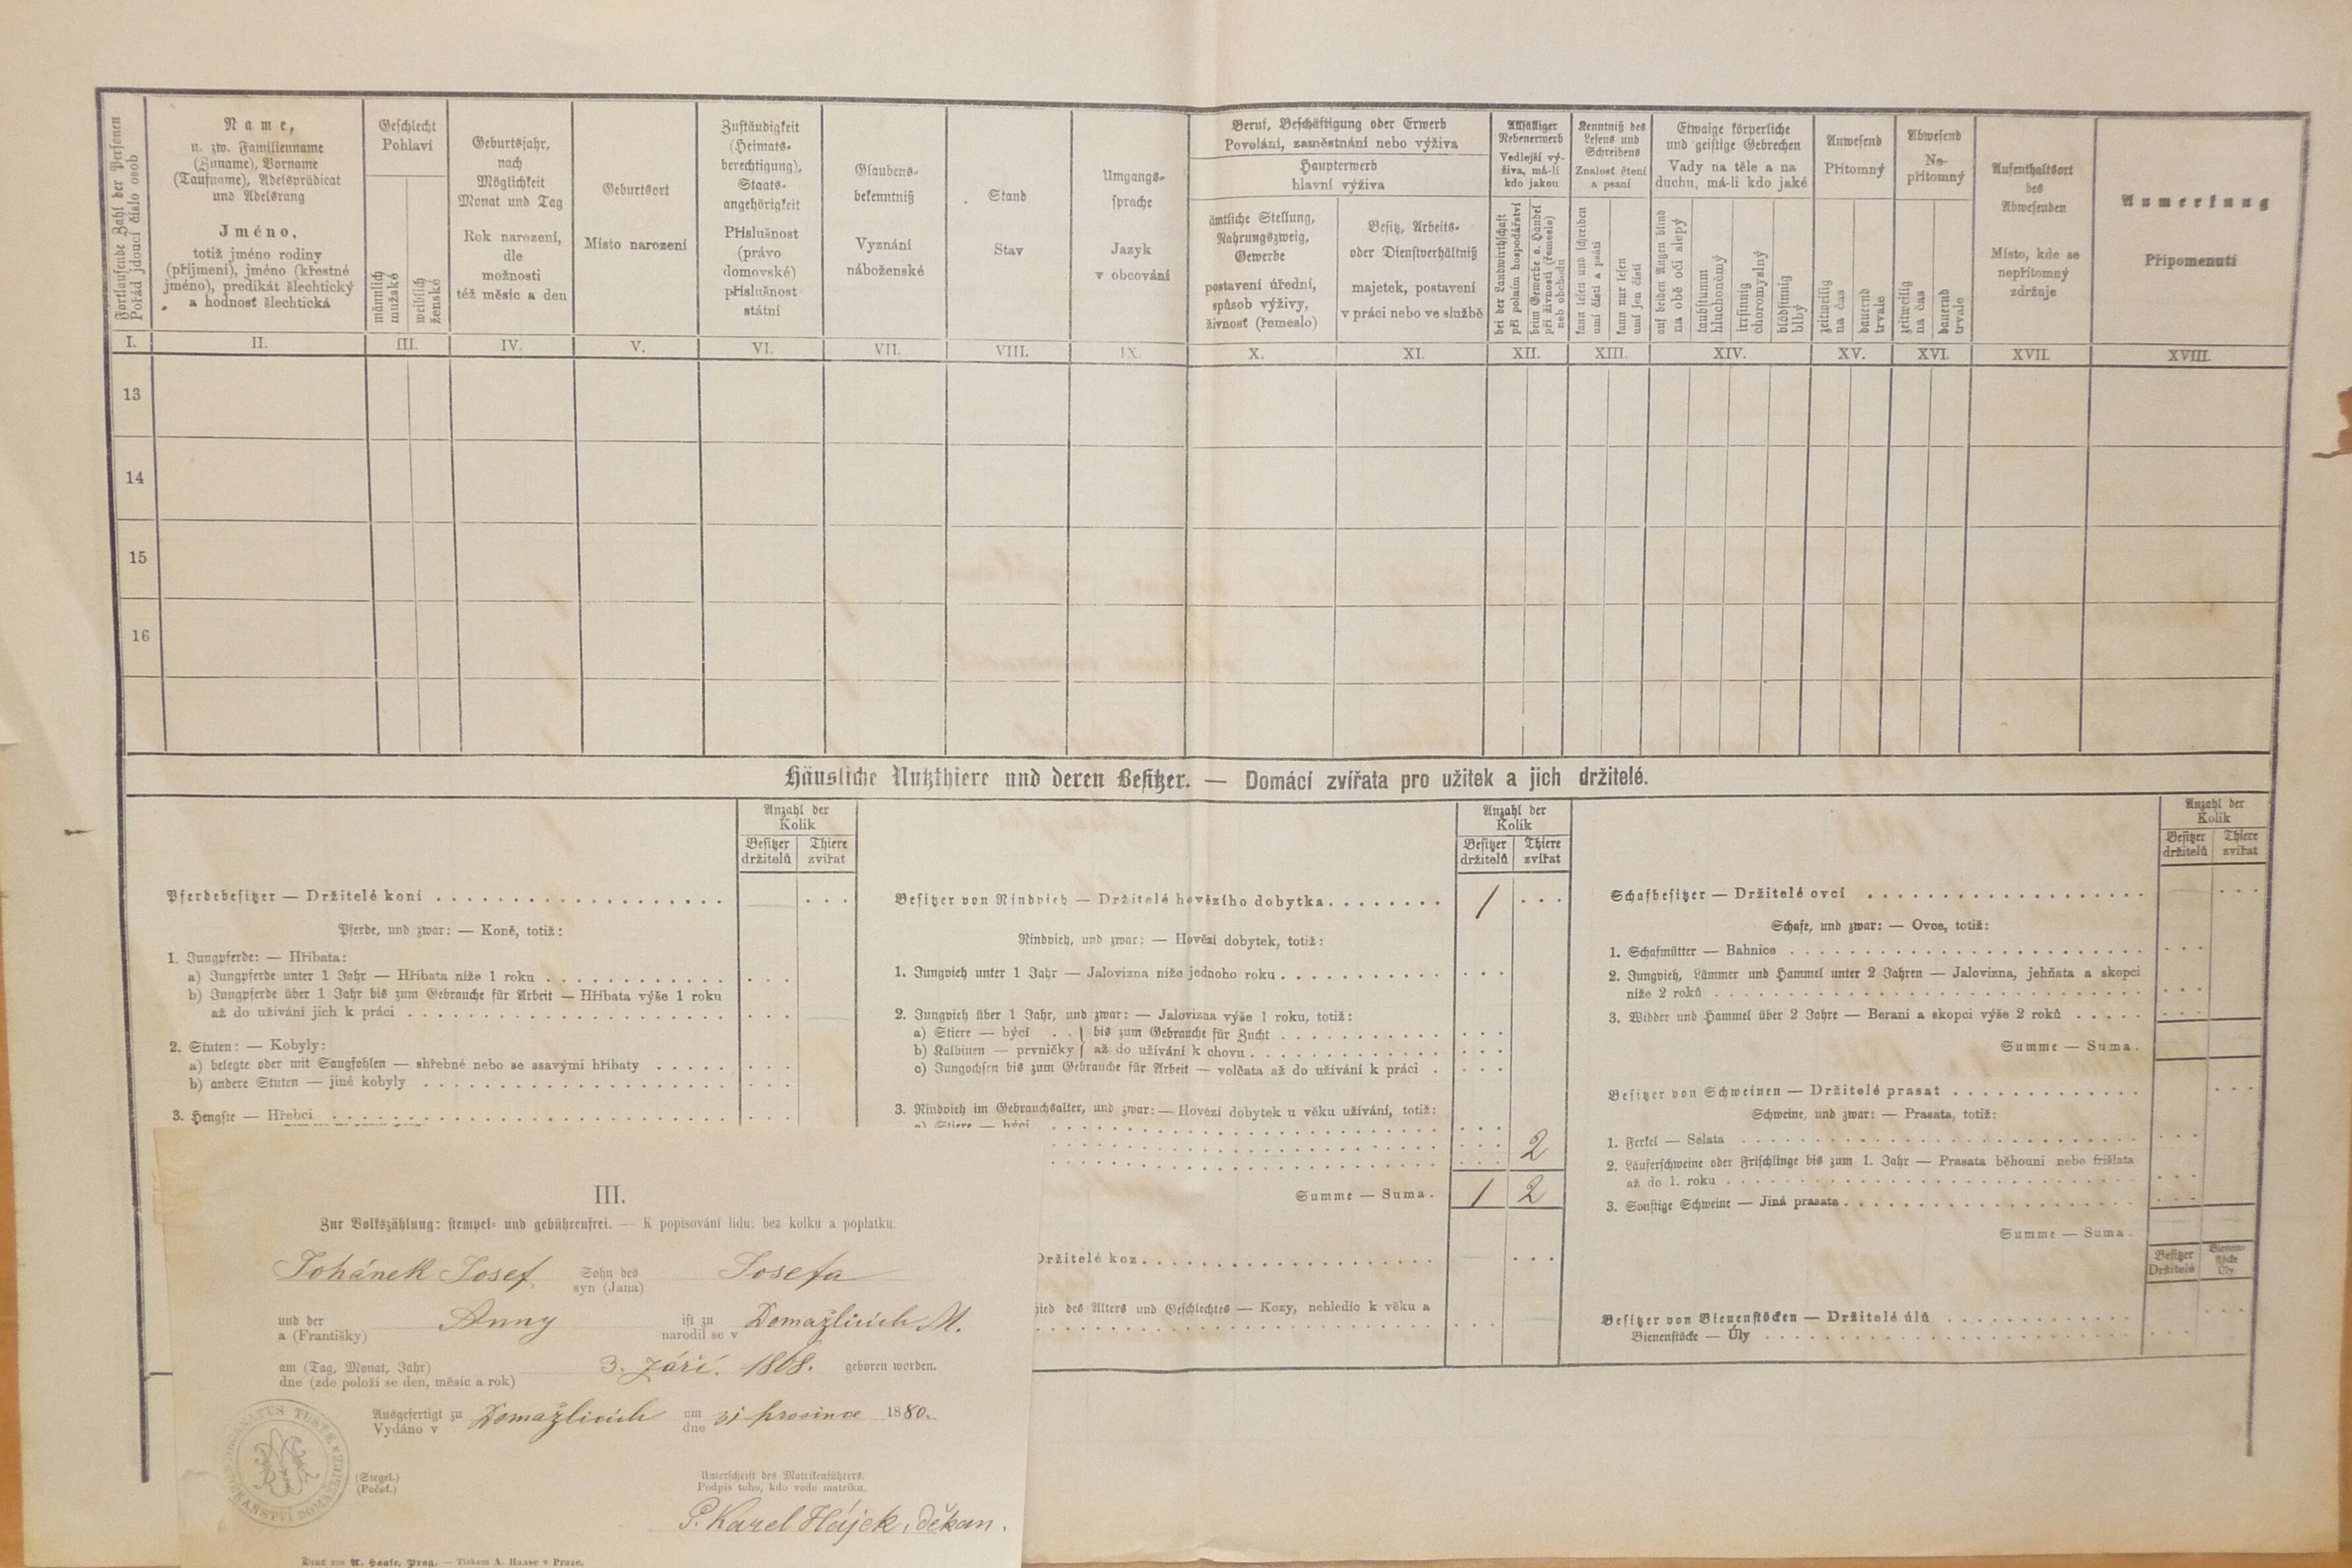 Fortlaufende Zahl der Personen
Pořád jdoucí číslo osob
Name,
u. zw. Familienname
(Zuname), Vorname
(Taufname), Adelsprädicat
und Adelsrang
Jméno,
totiž jméno rodiny
(příjmení), jméno (křestné
jméno), predikát šlechtický
a hodnost šlechtická
Geschlecht
Pohlaví
männlich
mužské
weiblich
ženské
Geburtsjahr,
nach
Möglichkeit
Monat und Tag
Rok narození,
dle
možnosti
též měsíc a den
Geburtsort
Místo narození
Zuständigkeit
(Heimats-
berechtigung),
Staats-
angehörigkeit
Příslušnost
(právo
domovské)
příslušnost
státní
Glaubens-
bekenntniß
Vyznání
náboženské
Stand
Stav
Umgangs-
sprache
Jazyk
v obcování
Beruf, Beschäftigung oder Erwerb
Povolání, zaměstnání nebo výživa
Haupterwerb
hlavní výživa
ämtliche Stellung,
Nahrungszweig,
Gewerbe
postavení úřední,
spůsob výživy,
živnost (řemeslo)
Besitz, Arbeits-
oder Dienstverhältniß
majetek, postavení
v práci nebo ve službě
Allfälliger
Nebenerwerb
Vedlejší vý-
živa, má-li
kdo jakou
bei der Landwirthschaft
při polním hospodářství
beim Gewerbe o. Handel
při živnosti (řemesle)
neb obchodu
Kenntniß des
Lesens und
Schreibens
Znalost čtení
a psaní
kann lesen und schreiben
umí čísti a psáti
kann nur lesen
umí jen čísti
Etwaige körperliche
und geistige Gebrechen
Vady na těle a na
duchu, má-li kdo jaké
auf beiden Augen blind
na obě oči slepý
taubstumm
hluchoněmý
irrsinnig
choromyslný
blödsinnig
blbý
Anwesend
Přítomný
zeitweilig
na čas
dauernd
trvale
Abwesend
Ne-
přítomný
zeitweilig
na čas
dauernd
trvale
Aufenthaltsort
des
Abwesenden
Místo, kde se
nepřítomný
zdržuje
Anmerkung
Připomenutí
I. II. III. IV. V. VI. VII. VIII. IX. X. XI. XII. XIII. XIV. XV. XVI. XVII. XVIII.
13
14
15
16
Häusliche Nutzthiere und deren Besitzer. — Domácí zvířata pro užitek a jich držitelé.
Anzahl der
Kolik
Besitzer
držitelů
Thiere
zvířat
Pferdebesitzer — Držitelé koní
Pferde, und zwar: — Koně, totiž:
1. Jungpferde: — Hříbata:
a) Jungpferde unter 1 Jahr — Hříbata níže 1 roku
b) Jungpferde über 1 Jahr bis zum Gebrauche für Arbeit — Hříbata výše 1 roku
až do užívání jich k práci
2. Stuten: — Kobyly:
a) belegte oder mit Saugfohlen — shřebné nebo se ssavými hříbaty
b) andere Stuten — jiné kobyly
3. Hengste — Hřebci
Anzahl der
Kolik
Besitzer
držitelů
Thiere
zvířat
Besitzer von Rindvieh — Držitelé hovězího dobytka 1
Rindvieh, und zwar: — Hovězí dobytek, totiž:
1. Jungvieh unter 1 Jahr — Jalovizna níže jednoho roku
2. Jungvieh über 1 Jahr, und zwar: — Jalovizna výše 1 roku, totiž:
a) Stiere — býci . . } bis zum Gebrauche für Zucht
b) Kalbinen — prvničky } až do užívání k chovu
c) Jungochsen bis zum Gebrauche für Arbeit — volčata až do užívání k práci
3. Rindvieh im Gebrauchsalter, und zwar: — Hovězí dobytek u věku užívání, totiž:
a) Stiere — býci
2
Summe — Suma. 1 2
Držitelé koz
hied des Alters und Geschlechtes — Kozy, nehledíc k věku a
Anzahl der
Kolik
Besitzer
držitelů
Thiere
zvířat
Schafbesitzer — Držitelé ovcí
Schafe, und zwar: — Ovce, totiž:
1. Schafmütter — Bahnice
2. Jungvieh, Lämmer und Hammel unter 2 Jahren — Jalovizna, jehňata a skopci
níže 2 roků
3. Widder und Hammel über 2 Jahre — Berani a skopci výše 2 roků
Summe — Suma.
Besitzer von Schweinen — Držitelé prasat
Schweine, und zwar: — Prasata, totiž:
1. Ferkel — Selata
2. Läuferschweine oder Frischlinge bis zum 1. Jahr — Prasata běhouni nebo frišlata
až do 1. roku
3. Sonstige Schweine — Jiná prasata
Summe — Suma.
Besitzer
Držitelé
Bienen-
stöcke
Úly
Besitzer von Bienenstöcken — Držitelé úlů
Bienenstöcke — Úly
III.
Zur Volkszählung: stempel- und gebührenfrei. — K popisování lidu: bez kolku a poplatku.
Johánek Josef Sohn des
syn (Jana) Josefa
und der
a (Františky) Anny ist zu
narodil se v Domažlicích M.
am (Tag, Monat, Jahr)
dne (zde položí se den, měsíc a rok) 3. září. 1868. geboren worden.
Ausgefertigt zu
Vydáno v Domažlicích am
dne 31 prosince 1880.
(Siegel.)
(Pečeť.)
Unterschrift des Matrikenführers.
Podpis toho, kdo vede matriku.
P. Karel Hájek, děkan.
Druck von A. Haase, Prag. — Tiskem A. Haase v Praze.